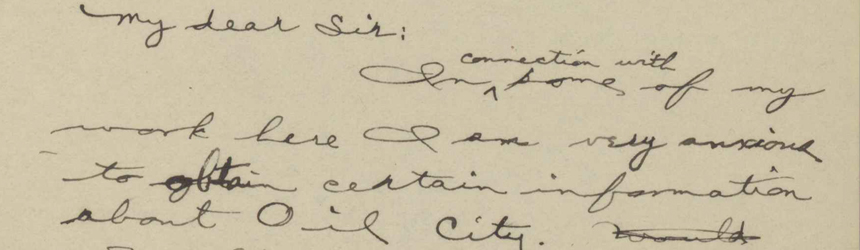 My dear Sir:
connection with
In ^ some of my
work here I am very anxious
to obtain certain information
about Oil City. Would